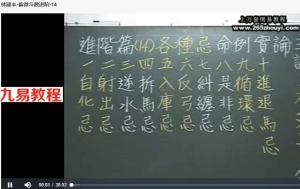 林建丰-紫微斗数进阶-14
www.265zhouyi.com
進階篇(14)各種忌命例實論
一自化忌
二射出忌
三逐水忌
四拆馬忌
五入庫忌
六反弓忌
七糾纏忌
八是非忌
九循環忌
十進退馬忌
九易教程
九易教程